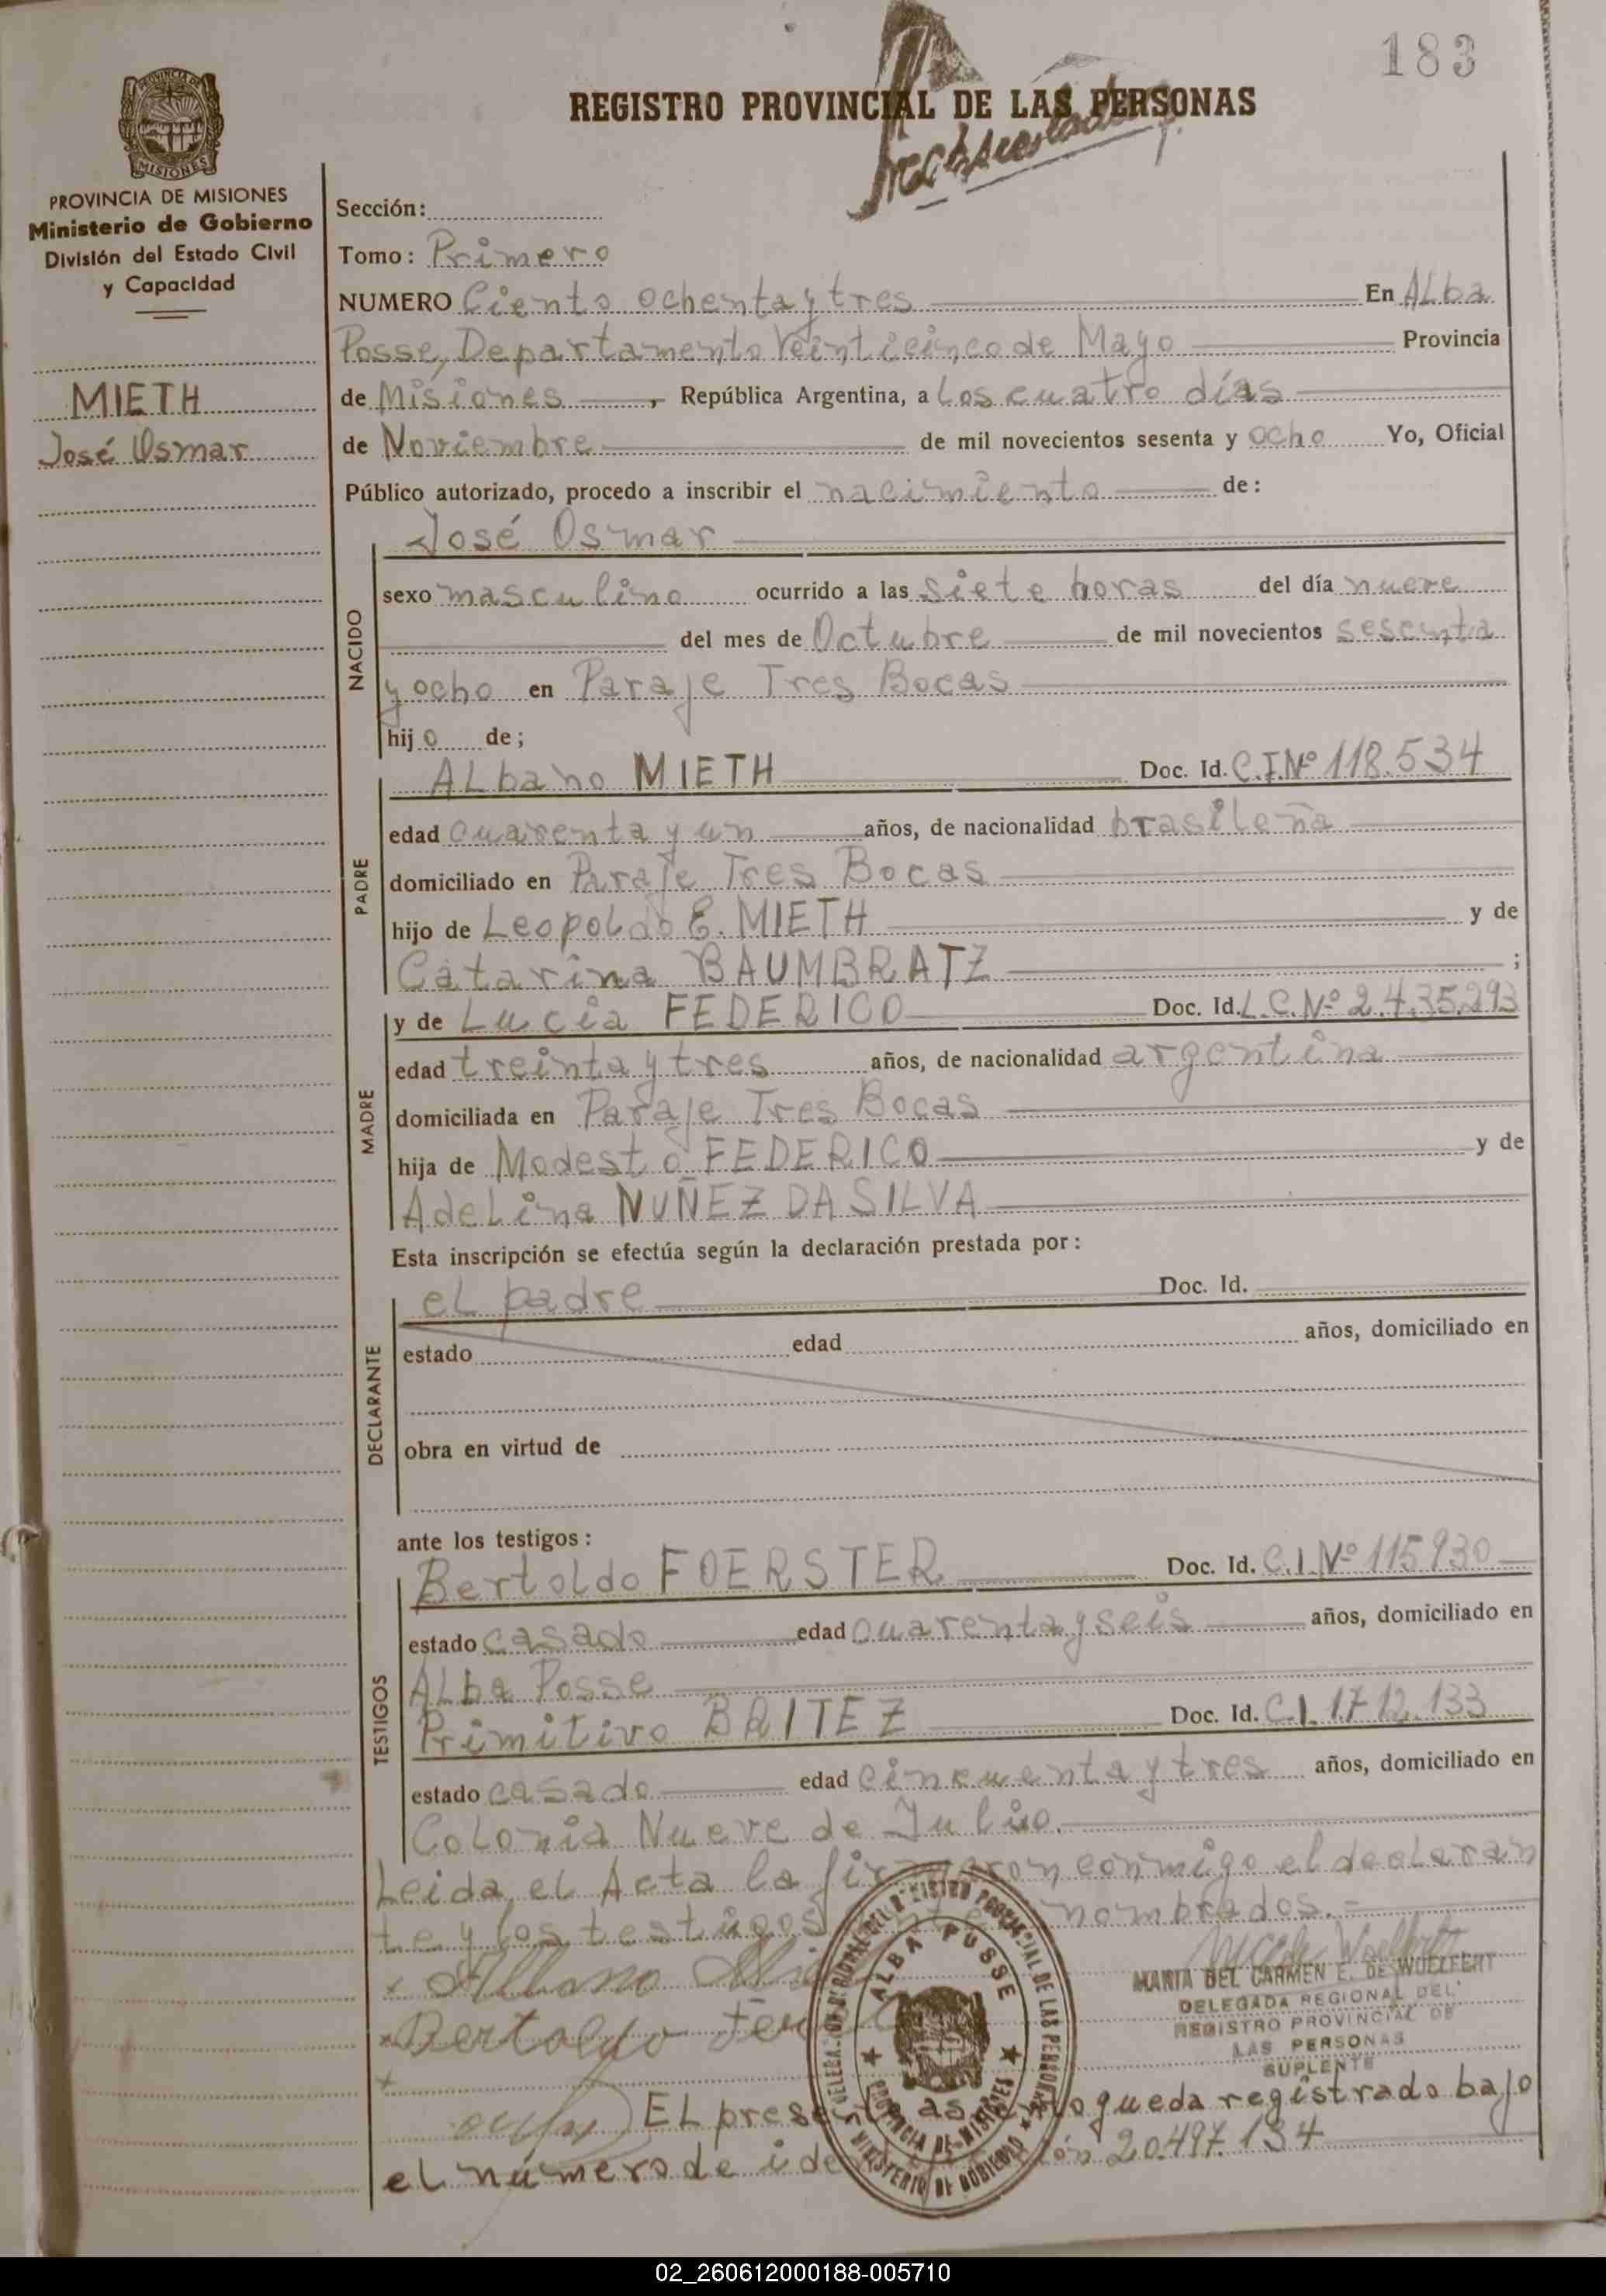 183
REGISTRO PROVINCIAL DE LAS PERSONAS
PROVINCIA DE MISIONES
Ministerio de Gobierno
División del Estado Civil
y Capacidad
MIETH
José Osmar
Sección:
Tomo: Primero
NUMERO Ciento ochenta y tres En Alba
Posse, Departamento Veinticinco de Mayo Provincia
de Misiones, República Argentina, a los cuatro días
de Noviembre de mil novecientos sesenta y ocho Yo, Oficial
Público autorizado, procedo a inscribir el nacimiento de:
José Osmar
NACIDO
sexo masculino ocurrido a las siete horas del día nueve
del mes de Octubre de mil novecientos sesenta
y ocho en Paraje Tres Bocas
hijo de;
PADRE
Albano MIETH Doc. Id. C.I.Nº 118.534
edad cuarenta y un años, de nacionalidad brasileña
domiciliado en Paraje Tres Bocas
hijo de Leopoldo E. MIETH y de
Catarina BAUMBRATZ ;
MADRE
y de Lucia FEDERICO Doc. Id. L.C.Nº 2.435.293
edad treinta y tres años, de nacionalidad argentina
domiciliada en Paraje Tres Bocas
hija de Modesto FEDERICO y de
Adelina NUÑEZ DA SILVA
Esta inscripción se efectúa según la declaración prestada por:
DECLARANTE
el padre Doc. Id.
estado edad años, domiciliado en
obra en virtud de
ante los testigos:
TESTIGOS
Bertoldo FOERSTER Doc. Id. C.I.Nº 115930
estado casado edad cuarenta y seis años, domiciliado en
Alba Posse
Primitivo BRITEZ Doc. Id. C.I. 1712.133
estado casado edad cincuenta y tres años, domiciliado en
Colonia Nueve de Julio.
Leida el Acta la firmaron conmigo el declaran
te y los testigos nombrados.=
Albano
Bertoldo
MARIA DEL CARMEN E. DE WOELFERT
DELEGADA REGIONAL DEL
REGISTRO PROVINCIAL DE
LAS PERSONAS
SUPLENTE
ALBA POSSE
PROVINCIA DE MISIONES
MINISTERIO DE GOBIERNO
El presente asiento queda registrado bajo
el número de identificación 20.497.134
02_260612000188-005710